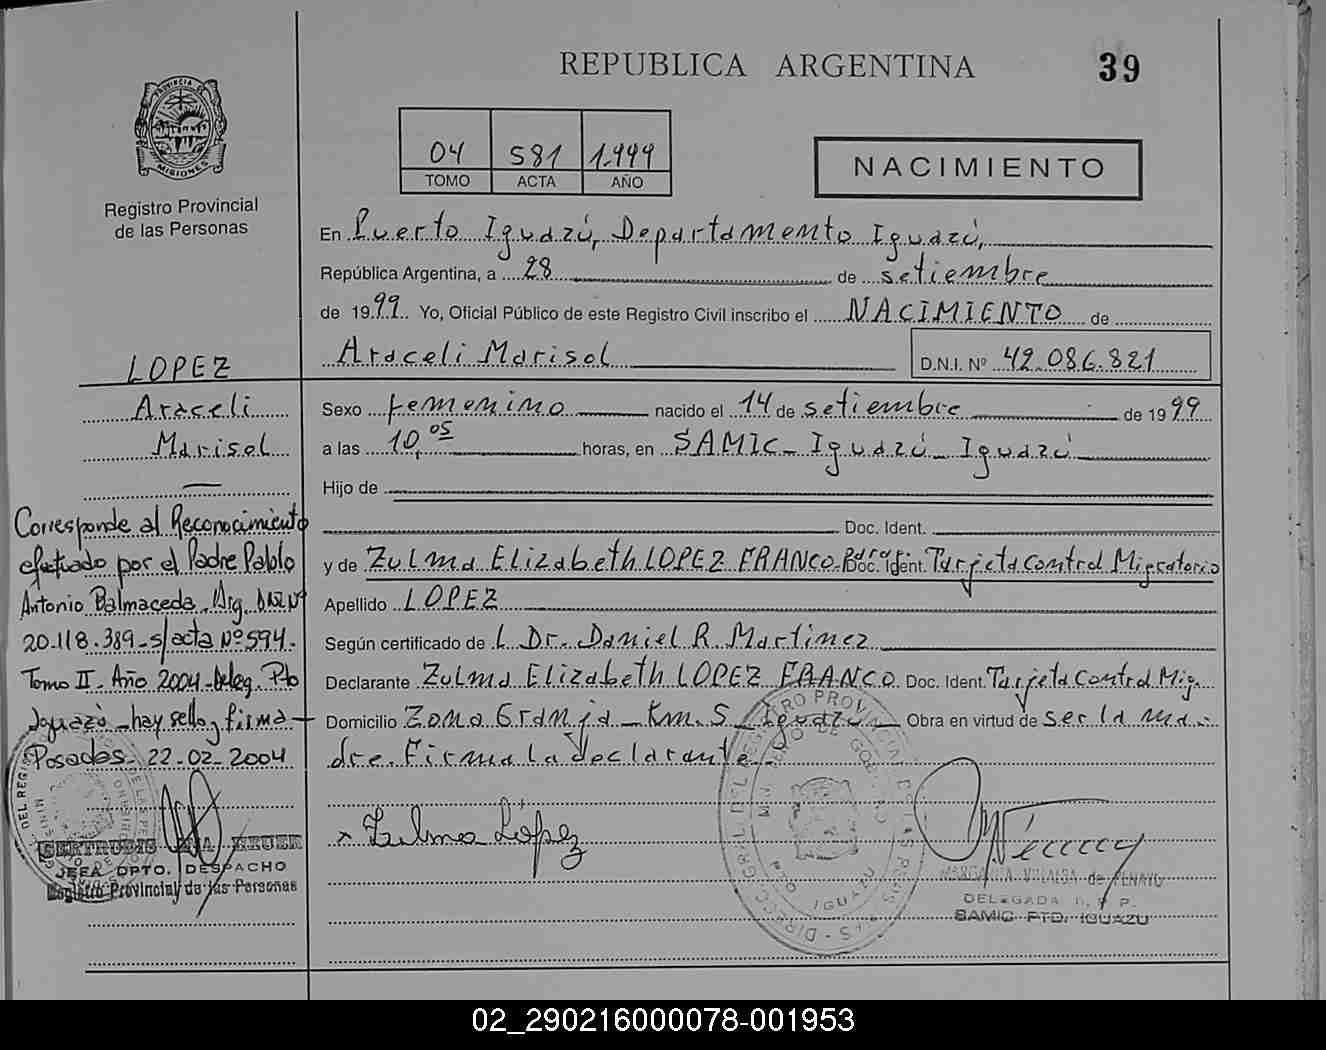 REPUBLICA ARGENTINA
39
PROVINCIA DE
MISIONES
Registro Provincial
de las Personas
04 581 1.999
TOMO ACTA AÑO
NACIMIENTO
En Puerto Iguazú, Departamento Iguazú,
República Argentina, a 28 de setiembre
de 1999 Yo, Oficial Público de este Registro Civil inscribo el NACIMIENTO de
Araceli Marisol D.N.I. Nº 42.086.821
Sexo femenino nacido el 14 de setiembre de 1999
a las 10,05 horas, en SAMIC - Iguazú - Iguazú
Hijo de
Doc. Ident.
y de Zulma Elizabeth LOPEZ FRANCO Doc. Ident. Tarjeta Control Migratorio
Apellido LOPEZ
Según certificado de L Dr. Daniel R. Martinez
Declarante Zulma Elizabeth LOPEZ FRANCO Doc. Ident. Tarjeta Control Mig.
Domicilio Zona Granja - Km. 5 - Iguazú - Obra en virtud de ser la ma-
dre. Firma la declarante.
x Zulma López
LOPEZ
Araceli
Marisol
Corresponde al Reconocimiento
efectuado por el Padre Pablo
Antonio Balmaceda. Arg. DNI Nº
20.118.389 - s/acta Nº 594.
Tomo II - Año 2004 - Deleg. Pto
Iguazú - hay sello y firma -
Posadas - 22-02-2004
JEFA DPTO. DESPACHO
Registro Provincial de las Personas
IGUAZU
MARGARITA VILLALBA de
DELEGADA R. P. P.
SAMIC PTO. IGUAZU
02_290216000078-001953